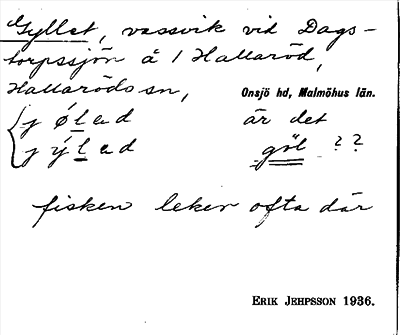 Gyllet, vassvik vid Dags-
torpssjön å 1 Hallaröd,
Hallaröds sn, Onsjö hd, Malmöhus län.
j ø l e d är det
j ý l e d göl ??
fisken leker ofta där
ERIK JEHPSSON 1936.